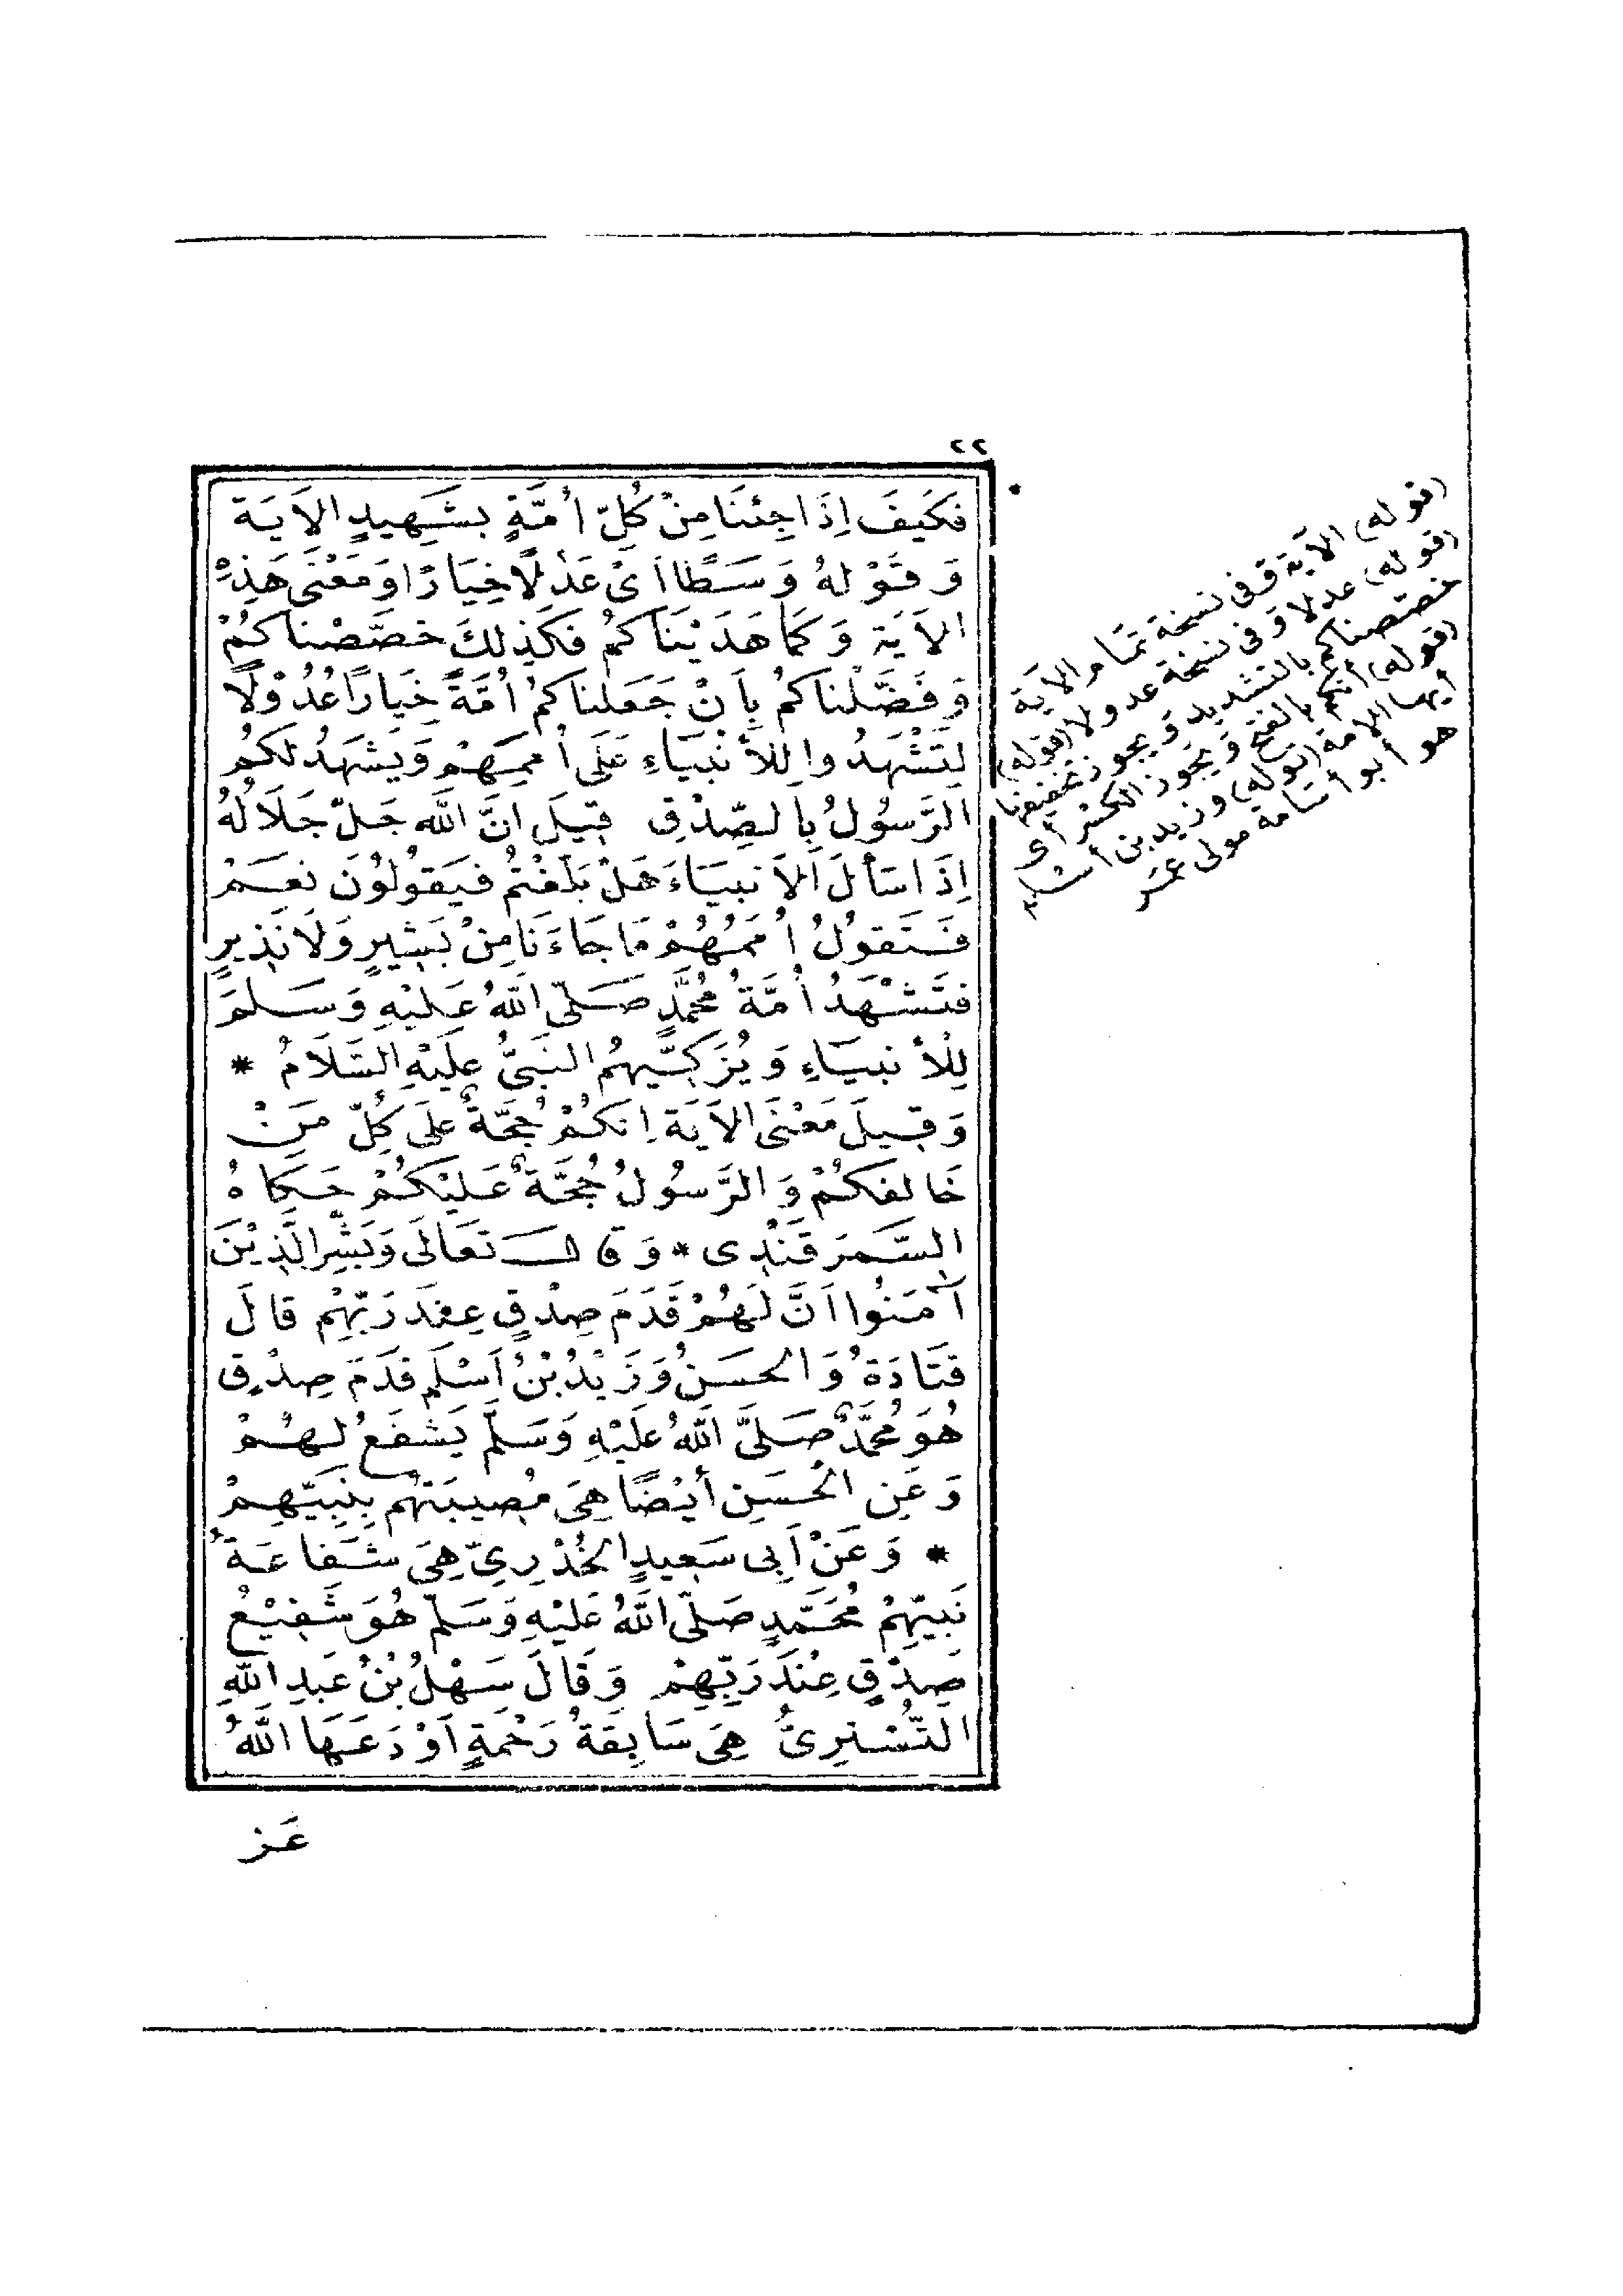 ٢٢
فَكَيْفَ اِذَا جِئْنَا مِنْ كُلِّ أُمَّةٍ بِشَهِيدٍ الاٰيَةَ
وَقَوْلهُ وَسَطًا اَىْ عَدْلًا خِيَارًا وَمَعْنَى هَذِهِ
الاٰيَةِ وَكَمَا هَدَيْنَاكُمْ فَكَذٰلِكَ خَصَّصْنَاكُمْ
وَفَضَّلْنَاكُمْ بِاَنْ جَعَلْنَاكُمْ اُمَّةً خِيَارًا عُدُوْلًا
لِتَشْهَدُوا لِلأَنْبِيَاءِ عَلَى اُمَمِهِمْ وَيَشْهَدُ لَكُمُ
الرَّسُولُ بِالصِّدْقِ قِيلَ اِنَّ اللّٰهَ جَلَّ جَلَالُهُ
اِذَا سَأَلَ الاَنْبِيَاءَ هَلْ بَلَّغْتُمْ فَيَقُولُوْنَ نَعَمْ
فَتَقُولُ اُمَمُهُمْ مَا جَاءَنَا مِنْ بَشِيرٍ وَلَا نَذِيرٍ
فَتَشْهَدُ اُمَّةُ مُحَمَّدٍ صَلَّى اللّٰهُ عَلَيْهِ وَسَلَّمَ
لِلأَنْبِيَاءِ وَيُزَكِّيهِمُ النَّبِىُّ عَلَيْهِ السَّلَامُ *
وَقِيلَ مَعْنَى الاٰيَةِ اِنَّكُمْ حُجَّةٌ عَلَى كُلِّ مَنْ
خَالَفَكُمْ وَالرَّسُولُ حُجَّةٌ عَلَيْكُمْ حَكَاهُ
السَّمَرْقَنْدِى * وَقَالَ تَعَالَى وَبَشِّرِ الَّذِيْنَ
آمَنُوا اَنَّ لَهُمْ قَدَمَ صِدْقٍ عِنْدَ رَبِّهِمْ قَالَ
قَتَادَةُ وَالْحَسَنُ وَزَيْدُ بْنُ اَسْلَمَ قَدَمَ صِدْقٍ
هُوَ مُحَمَّدٌ صَلَّى اللّٰهُ عَلَيْهِ وَسَلَّمَ يَشْفَعُ لَهُمْ
وَعَنِ الْحَسَنِ أَيْضًا هِىَ مُصِيبَتُهُمْ بِنَبِيِّهِمْ
* وَعَنْ اَبِى سَعِيدٍ الْخُدْرِىِّ هِىَ شَفَاعَةُ
نَبِيِّهِمْ مُحَمَّدٍ صَلَّى اللّٰهُ عَلَيْهِ وَسَلَّمَ هُوَ شَفِيْعُ
صِدْقٍ عِنْدَ رَبِّهِمْ وَقَالَ سَهْلُ بْنُ عَبْدِ اللّٰهِ
التُّسْتَرِىُّ هِىَ سَابِقَةُ رَحْمَةٍ اَوْدَعَهَا اللّٰهُ
عَزَّ
(قوله) الآية وفى نسخة تمام الآية
(قوله) عدلا وفى نسخة عدولا (قوله)
خصّصناكم بالتشديد ويجوز تخفيفها
(قوله) أنكم بالفتح ويجوز الكسر أى
أيها الأمة (قوله) وزيد بن أسلم
هو أبو أسامة مولى عمر